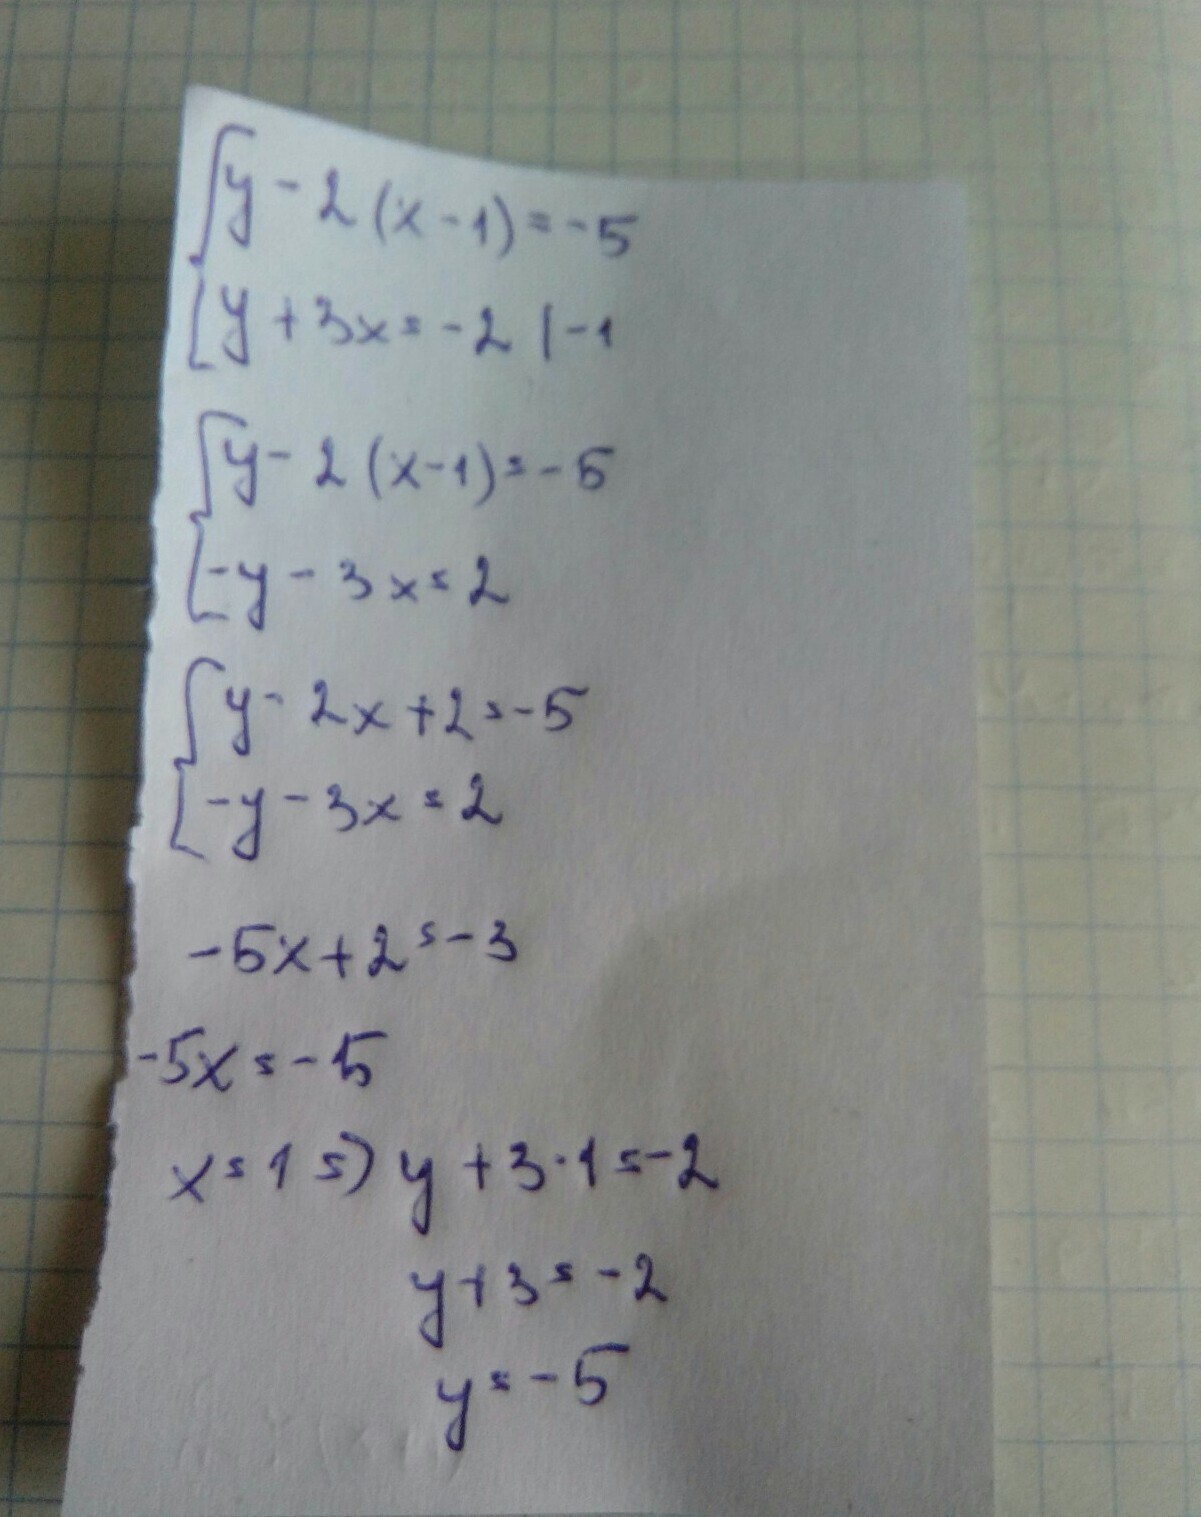 y - 2 (x - 1) = -5
y + 3x = -2 | -1
y - 2 (x - 1) = -5
-y - 3x = 2
y - 2x + 2 = -5
-y - 3x = 2
-5x + 2 = -3
-5x = -5
x = 1 => y + 3 · 1 = -2
y + 3 = -2
y = -5